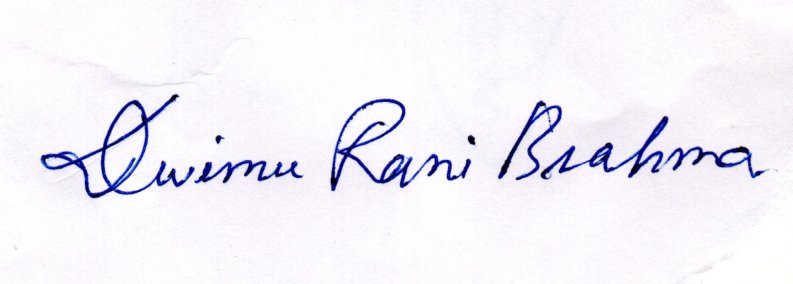 Dwimu Rani Brahma